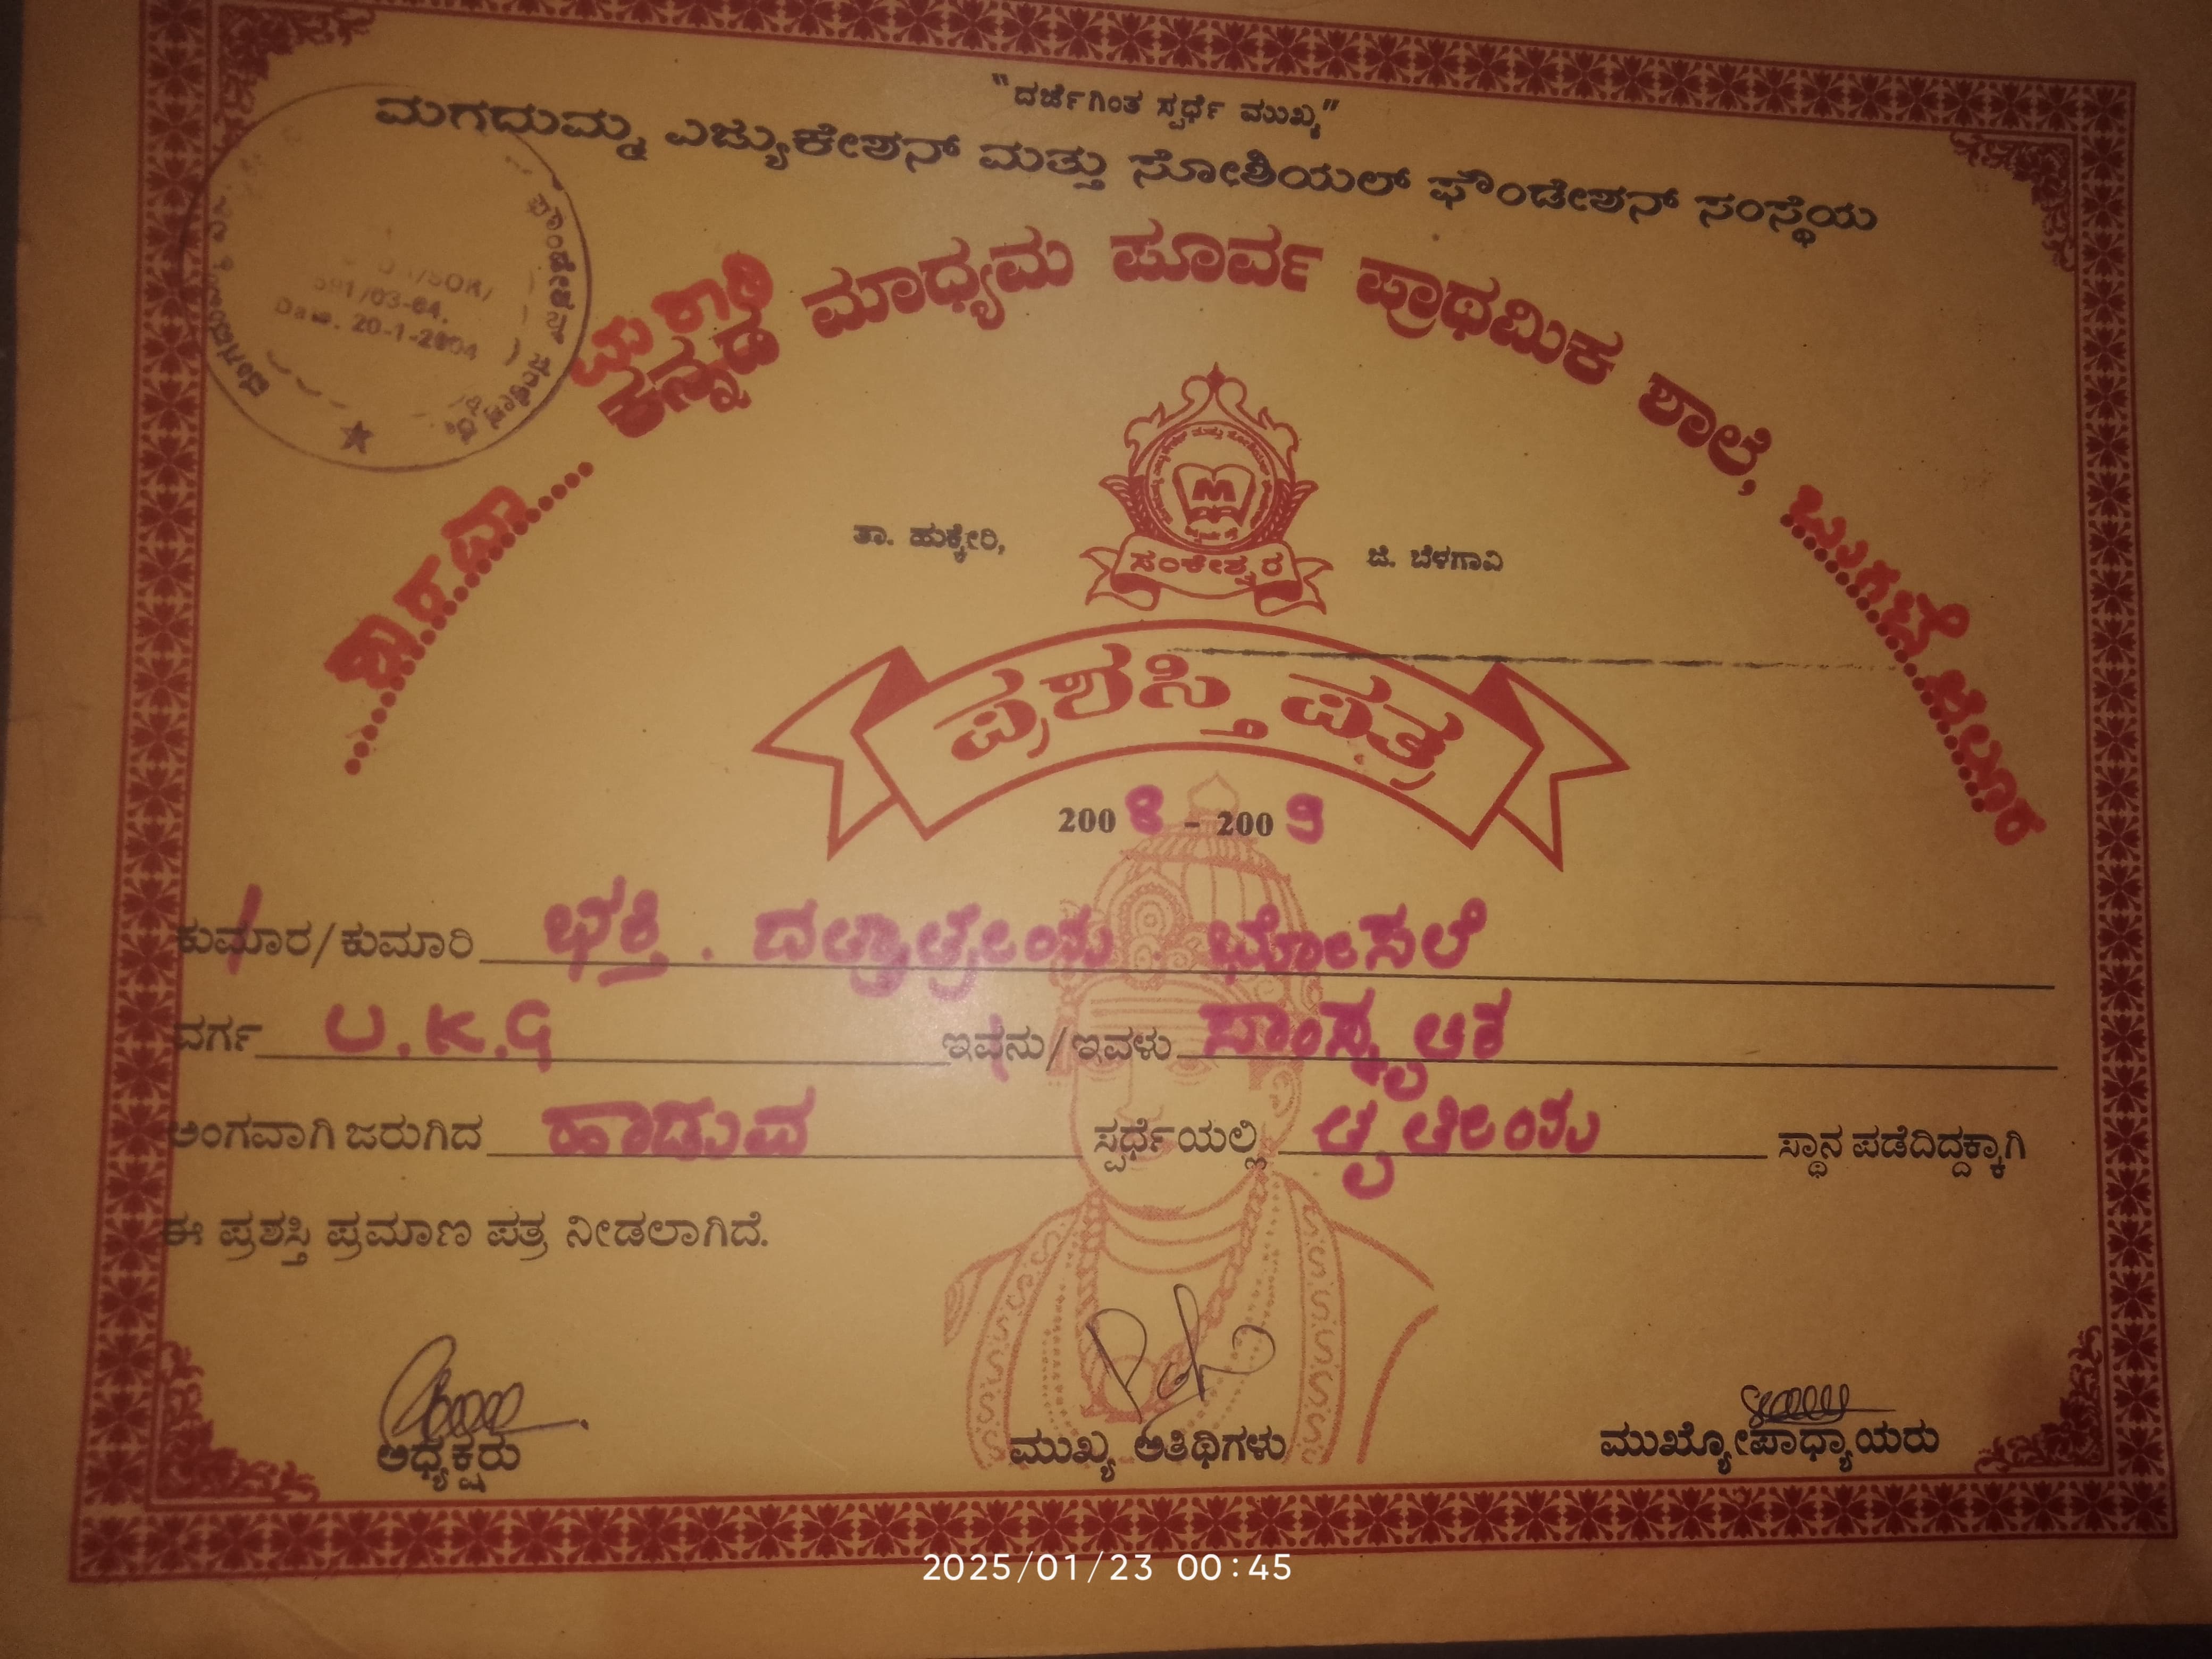 "ದರ್ಜೆಗಿಂತ ಸ್ಪರ್ಧೆ ಮುಖ್ಯ"
ಮಗದುಮ್ಮ ಎಜ್ಯುಕೇಶನ್ ಮತ್ತು ಸೋಶಿಯಲ್ ಫೌಂಡೇಶನ್ ಸಂಸ್ಥೆಯ
ಫೌಂಡೇಶನ್ ಸಂಕೇಶ್ವರ
/SOR/
591/03-04.
Date. 20-1-2004
ಮರಾಠಿ
ಕನ್ನಡ ಮಾಧ್ಯಮ ಪೂರ್ವ ಪ್ರಾಥಮಿಕ ಶಾಲೆ, ಬುಗಟೆ ಆಲೂರ
ತಾ. ಹುಕ್ಕೇರಿ,
M
ಸಂಕೇಶ್ವರ
ಜಿ. ಬೆಳಗಾವಿ
ಪ್ರಶಸ್ತಿ ಪತ್ರ
2008 - 2009
ಕುಮಾರ/ಕುಮಾರಿ ಭಕ್ತಿ . ದತ್ತಾತ್ರೇಯ ಭೋಸಲೆ
ವರ್ಗ U.K.G ಇವನು/ಇವಳು ಸಾಂಸ್ಕೃತಿಕ
ಅಂಗವಾಗಿ ಜರುಗಿದ ಹಾಡುವ ಸ್ಪರ್ಧೆಯಲ್ಲಿ ತೃತೀಯ ಸ್ಥಾನ ಪಡೆದಿದ್ದಕ್ಕಾಗಿ
ಈ ಪ್ರಶಸ್ತಿ ಪ್ರಮಾಣ ಪತ್ರ ನೀಡಲಾಗಿದೆ.
ಅಧ್ಯಕ್ಷರು ಮುಖ್ಯ ಅತಿಥಿಗಳು ಮುಖ್ಯೋಪಾಧ್ಯಾಯರು
2025/01/23 00:45